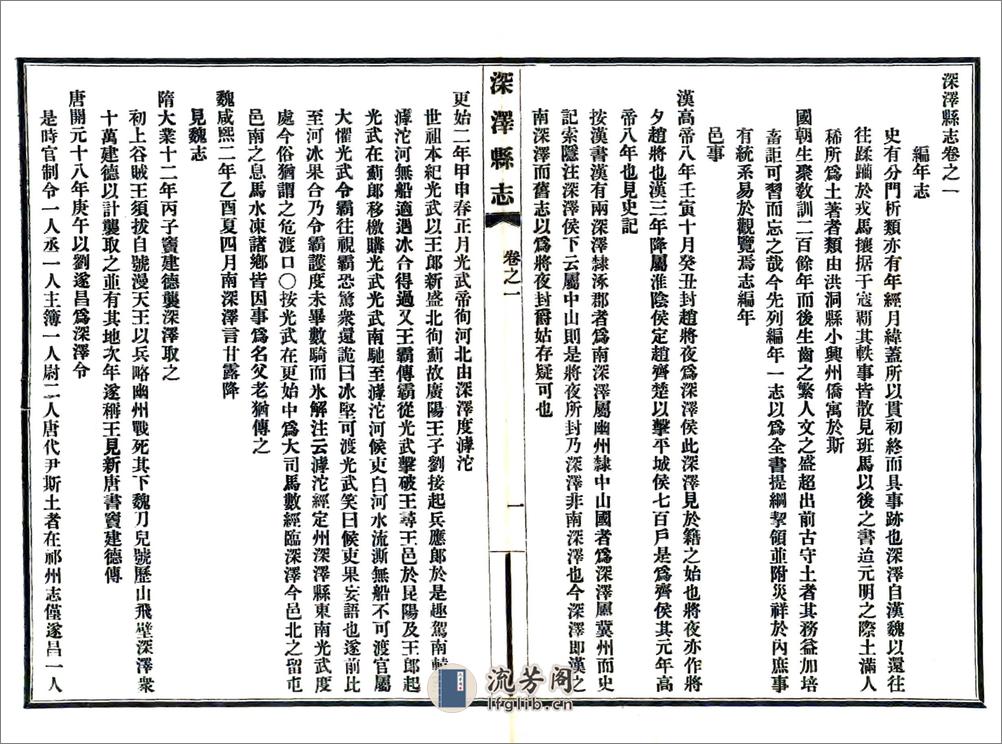 深澤縣志卷之一
編年志
史有分門析類亦有年經月緯蓋所以貫初終而具事跡也深澤自漢魏以還往
往蹂躪於戎馬攘据于寇覇其軼事皆散見班馬以後之書迨元明之際土滿人
稀所爲土著者類由洪洞縣小興州僑寓於斯
國朝生聚敎訓二百餘年而後生齒之繁人文之盛超出前古守土者其務益加培
畜詎可習而忘之哉今先列編年一志以爲全書提綱挈領並附災祥於內庶事
有統系易於觀覽焉志編年
邑事
漢高帝八年壬寅十月癸丑封趙將夜爲深澤侯此深澤見於籍之始也將夜亦作將
夕趙將也漢三年降屬淮陰侯定趙齊楚以擊平城侯七百戶是爲齊侯其元年高
帝八年也見史記
按漢書漢有兩深澤隸涿郡者爲南深澤屬幽州隸中山國者爲深澤屬冀州而史
記索隱注深澤侯下云屬中山則是將夜所封乃深澤非南深澤也今深澤即漢之
南深澤而舊志以爲將夜封爵姑存疑可也
深澤縣志
卷之一
一
更始二年甲申春正月光武帝徇河北由深澤度滹沱
世祖本紀光武以王郎新盛北徇薊故廣陽王子劉接起兵應郎於是趣駕南轅
滹沱河無船適遇冰合得過又王霸傳霸從光武擊破王尋王邑於昆陽及王郎起
光武在薊郎移檄購光武光武南馳至滹沱河候吏白河水流澌無船不可渡官屬
大懼光武令霸往視霸恐驚衆還詭曰冰堅可渡光武笑曰候吏果妄語也遂前比
至河冰果合乃令霸護度未畢數騎而氷解注云滹沱經定州深澤縣東南光武度
處今俗猶謂之危渡口〇按光武在更始中爲大司馬數經臨深澤今邑北之留屯
邑南之息馬水凍諸鄉皆因事爲名父老猶傳之
魏咸熙二年乙酉夏四月南深澤言甘露降
見魏志
隋大業十二年丙子竇建德襲深澤取之
初上谷賊王須拔自號漫天王以兵略幽州戰死其下魏刀兒號歷山飛壁深澤衆
十萬建德以計襲取之並有其地次年遂稱王見新唐書竇建德傳
唐開元十八年庚午以劉遂昌爲深澤令
是時官制令一人丞一人主簿一人尉二人唐代尹斯土者在祁州志僅遂昌一人
流芳閣
lfglib.cn